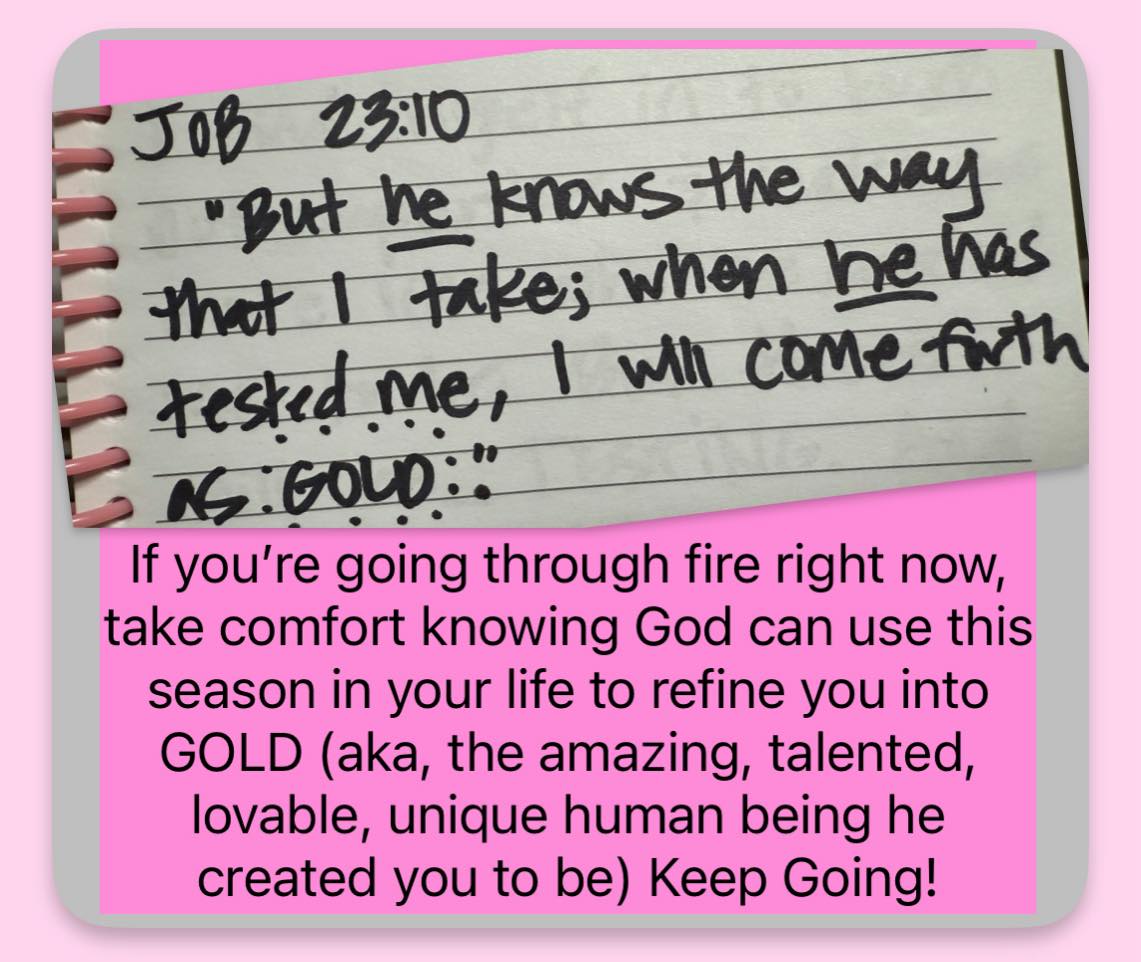 JOB 23:10
"But he knows the way
that I take; when he has
tested me, I will come forth
as :GOLD:."
If you're going through fire right now,
take comfort knowing God can use this
season in your life to refine you into
GOLD (aka, the amazing, talented,
lovable, unique human being he
created you to be) Keep Going!